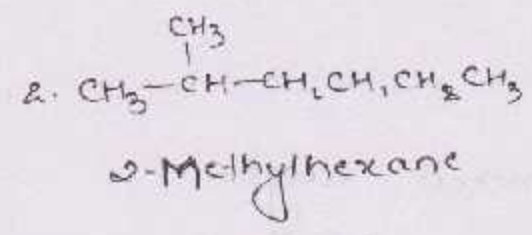 CH3
2. CH3-CH-CH2CH2CH2CH3
2-Methylhexane